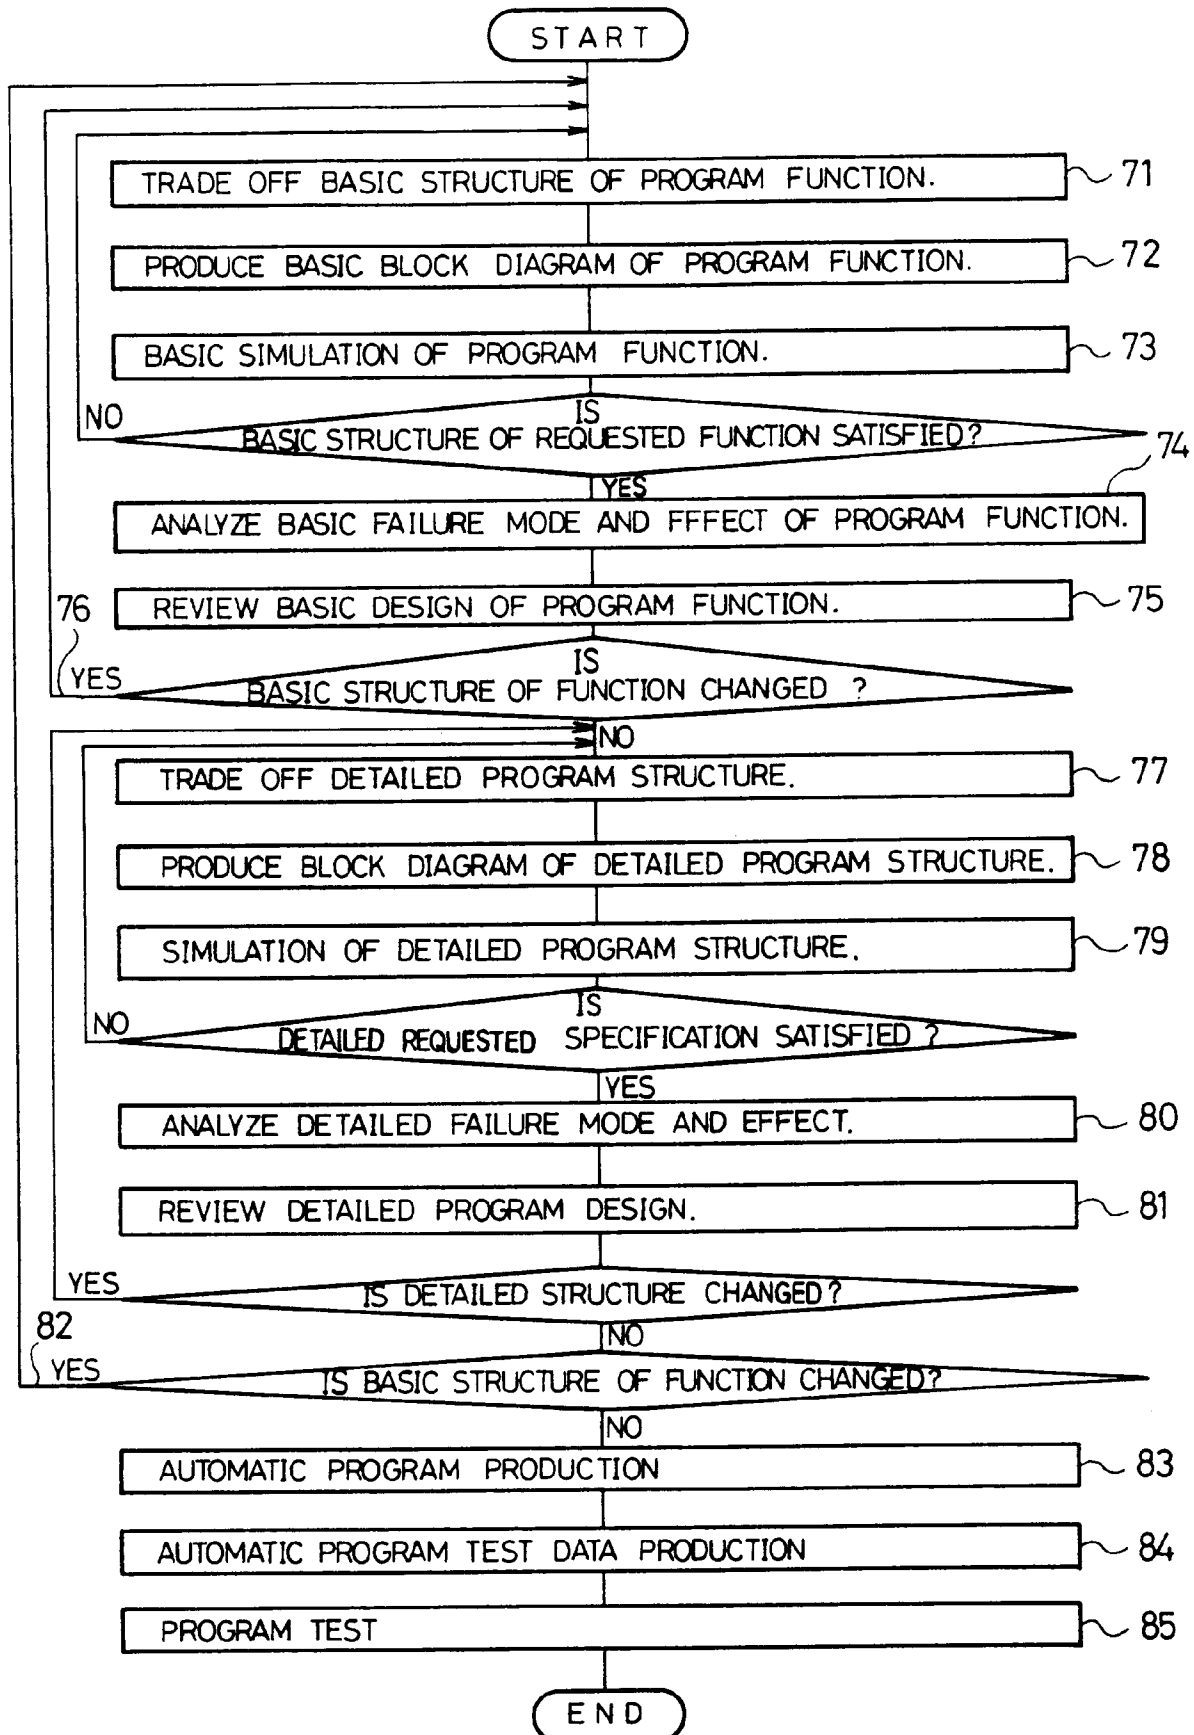 START
TRADE OFF BASIC STRUCTURE OF PROGRAM FUNCTION.
71
PRODUCE BASIC BLOCK DIAGRAM OF PROGRAM FUNCTION.
72
BASIC SIMULATION OF PROGRAM FUNCTION.
73
NO
IS
BASIC STRUCTURE OF REQUESTED FUNCTION SATISFIED?
74
YES
ANALYZE BASIC FAILURE MODE AND FFFECT OF PROGRAM FUNCTION.
REVIEW BASIC DESIGN OF PROGRAM FUNCTION.
75
76
YES
IS
BASIC STRUCTURE OF FUNCTION CHANGED ?
NO
TRADE OFF DETAILED PROGRAM STRUCTURE.
77
PRODUCE BLOCK DIAGRAM OF DETAILED PROGRAM STRUCTURE.
78
SIMULATION OF DETAILED PROGRAM STRUCTURE.
79
NO
IS
DETAILED REQUESTED SPECIFICATION SATISFIED ?
YES
ANALYZE DETAILED FAILURE MODE AND EFFECT.
80
REVIEW DETAILED PROGRAM DESIGN.
81
YES
IS DETAILED STRUCTURE CHANGED?
NO
82
YES
IS BASIC STRUCTURE OF FUNCTION CHANGED?
NO
AUTOMATIC PROGRAM PRODUCTION
83
AUTOMATIC PROGRAM TEST DATA PRODUCTION
84
PROGRAM TEST
85
END